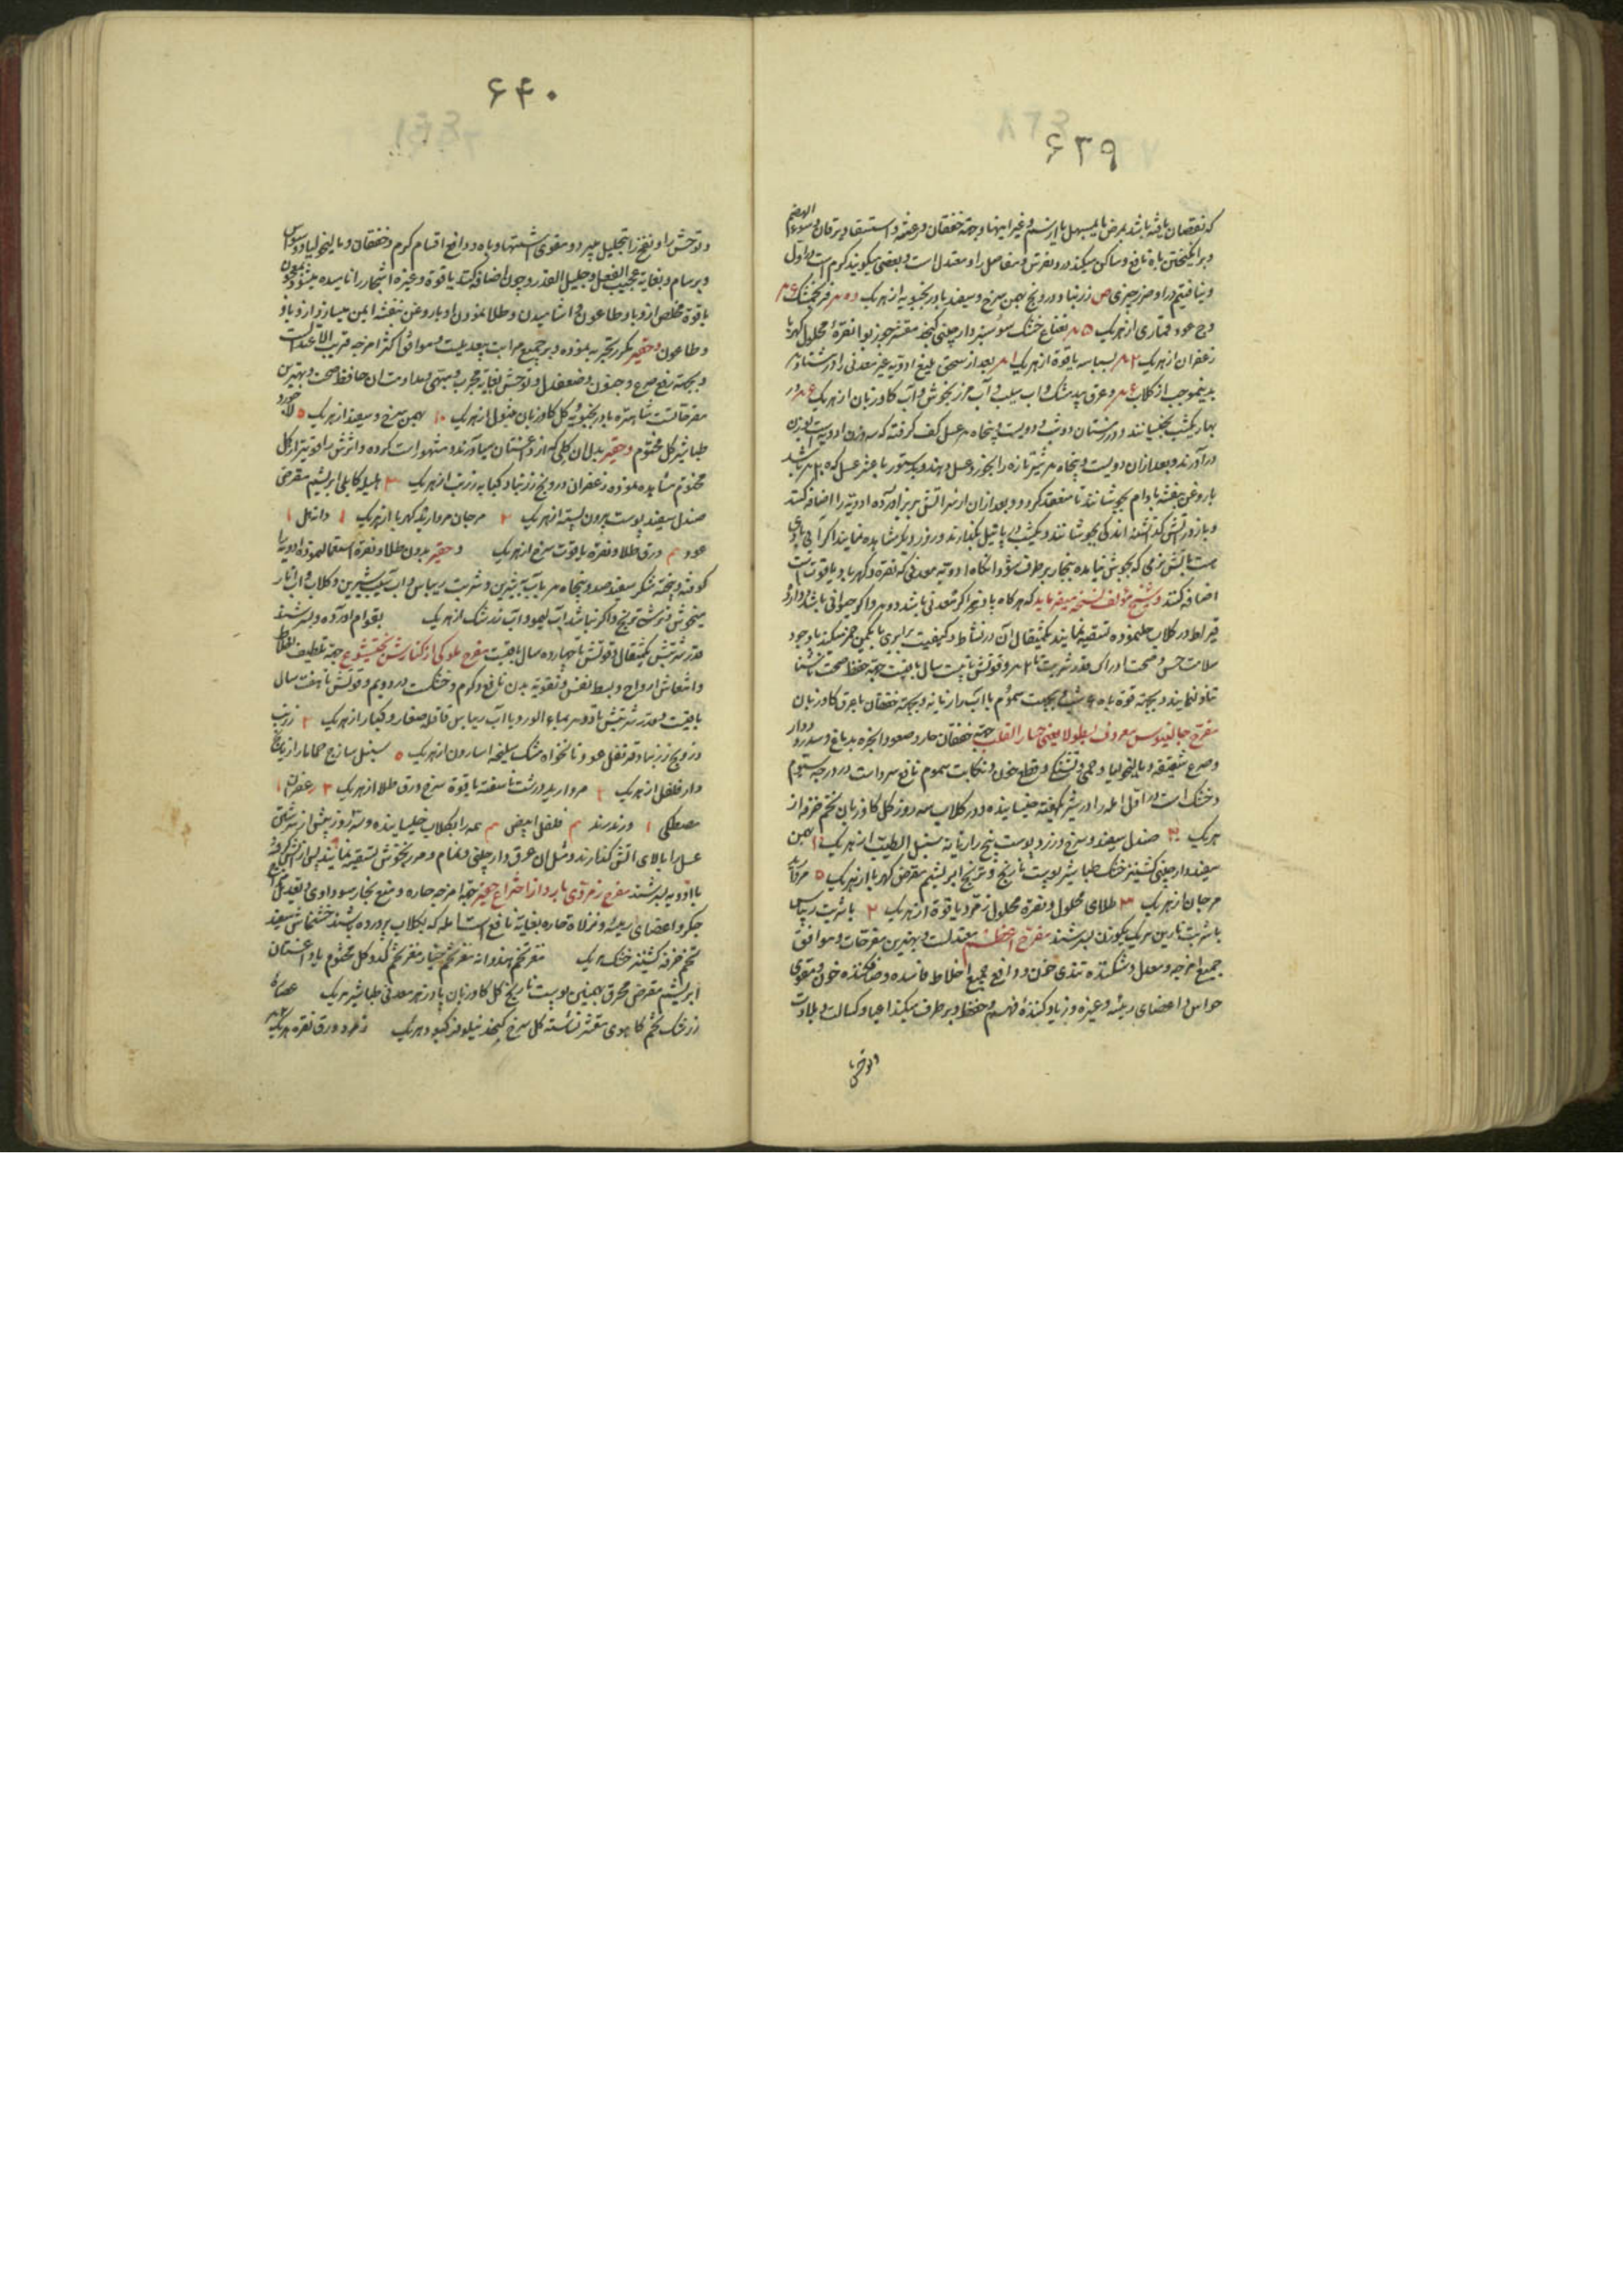 ۶۳۹
که نقصان یافته باشد بمرض یا بمسهل یا از سموم و غیر اینها و جهة خفقان و رعشه و استسقا و یرقان و سوء الهضم
و برانگیختن باه نافع و ساکن میکند درد نقرس و مفاصل را و معتدل است و بعضی میگویند گرم است در اول
و نیافتیم در او ضرر چیزی ص زرنباد درونج بهمن سرخ و سفید بادرنجبویه از هر یک
عود قماری از هر یک ۵ نعناع خشک دارچینی مقشر جوز بوا نقرهٔ محلول کهربا
زعفران از هر یک ۲ بسباسه یاقوة از هر یک بعد از سحق بلیغ ادویه غیر معدنی را در
بدینموجب از گلاب و عرق بیدمشک و آب سیب و آب مرزنجوش و آب گاوزبان از هر یک
بهار یکشب بخیسانند و در زمستان دو شب و دویست و پنجاه عسل کف گرفته که سه وزن ادویه است
درآورند و بعد از آن دویست و پنجاه شیر تازه را بخورد عسل دهند و بدستور با عشر عسل که باشد
با روغن بنفشه بادام بجوشانند تا منعقد گردد و بعد از آن از سر آتش بزیر آورده ادویه را اضافه کنند
و باز در آتش گذاشته اندکی بجوشانند و یکشب در پاتیل بگذارند و روز دیگر مشاهده نمایند اگر آبی باقی
است بآتش نرمی که بجوش نیاید بخار برطرف شود آنگاه ادویه معدنی که نقره و کهربا و یاقوت است
اضافه کنند و شیخ مؤلف نسخه میفرماید که هرگاه پادزهر اگر معدنی باشد دو و اگر حیوانی باشد
قیراط در گلاب حلنموده تسقیه نمایند یکمثقال آن در نشاط و کیفیت برابری با یکمن خمر میکند با وجود
سلامت حس و صحت ادراک قدر شربت تا و قوتش تا بیست سال باقیست جهة حفظ صحت ناشتا
تناول نمایند و بجهة قوة باه شب و بجهت سموم با آب رازیانه و بجهة خفقان با عرق گاوزبان
مفرح جالینوس معروف یعنی جهة خفقان حار و صعود ابخره بدماغ و سدر و دوار
و صرع شقیقه و مالیخولیا و حمی و تشنگی و نکایت سموم نافع سرد است در درجه سیوم
و خشک است در اول آمله را در شیر یکهفته خیسانیده و در گلاب سه روز گل گاوزبان تخم خرفه از
هر یک صندل سفید و سرخ و زرد پوست بیخ رازیانه سنبل الطیب از هر یک بهمن
سفید دارچینی کشنیز خشک طباشیر پوست نارنج و ترنج ابریشم مقرض کهربا از هر یک ۵
مرجان از هر یک ۳ طلای محلول و نقره محلول زمرد یاقوة از هر یک ۲ با شربت ریباس
یا شربت نارین هر یک یکوزن بسرشند مفرح اعظم معتدلست و بهترین مفرحات و موافق
جمیع امزجه و معدل و شکننده تندی خون و دافع جمیع اخلاط فاسده و صافکننده خون و مقوی
حواس و اعضای رئیسه و غیره و زیاد کنندهٔ فهم و حفظ و برطرف میکند اعیا و کسالت و بلادت
و توحش
۶۴۰
و توحش را و نفخ را بتحلیل میبرد و مقوی اشتها و باه و دافع اقسام کرم و خفقان و مالیخولیا و وسواس
و برسام و بغایة عجیب الفعل و جلیل القدر و چون اضافه کنند یاقوة و غیره احجار را نامیده میشود بمعجون
یاقوة مخلص از وبا و طاعون آشامیدن و طلا نمودن او با روغن بنفشه ایمن میسازد از وبا
و طاعون و حقیر مکرر تجربه نموده و بر جمیع مراتب بیعدیلست و موافق اکثر امزجه قریب الاعتدالست
و بجهة رفع صرع و جنون و ضعف دل و توحش بغایة مجرب و مداومت آن حافظ صحت و بهترین
مفرحاتست شاهتره بادرنجبویه گل گاوزبان از هر یک ۱۰ بهمن سرخ و سفید از هر یک ۵ لاجورد
طباشیر گل مختوم و حقیر بدل آن گلی که از داغستان میآورند و مشهور است کرده و اثرش را قویتر از گل
مختوم مشاهده نموده زعفران درونج زرنباد کبابه زرنب از هر یک ۳ هلیله کابلی ابریشم مقرض
صندل سفید پوست بیرون پسته از هر یک ۲ مرجان مروارید کهربا از هر یک دانه هل ۱
عود ورق طلا و نقره یاقوت سرخ از هر یک و حقیر بدون طلا و نقره استعمال نموده ادویه را
کوفته و بیخته شکر سفید صد و پنجاه با آب به شیرین و شربت ریباس و آب سیب شیرین و گلاب و آب انار
میخوش و ترشی ترنج و اگر نباشد آب لیمو و آب زرشک از هر یک بقوام آورده و بسرشند
قدر شربتش یکمثقال و قوتش تا چهارده سال باقیست مفرح ملوکی از کناش بختیشوع جهة تلطیف اخلاط
و انتعاش ارواح و بسط نفس و تقویه بدن نافع و گرم و خشکست در دویم و قوتش تا هفت سال
باقیست و قدر شربتش تا دو بماء الورد یا آب ریباس قاقله صغار و کبار از هر یک ۲ زرنب
درونج زرنباد قرنفل عود نانخواه مشک سلیخه اسارون از هر یک ۵ سنبل ساذج حماما رازیانج
دار فلفل از هر یک مروارید درشت ناسفته یاقوة سرخ ورق طلا از هر یک ۳ زعفران ۱
مصطکی ۱ فلفل ابیض همه را بگلاب خیسانیده و سه روز پیش از سرشتن
عسل را بالای آتش گذارند و مثل آن عرق دارچینی و نمام و مرزنجوش تسقیه نمایند پس از آتش گرفته
با ادویه بسرشند مفرح زمردی بارد از اختراع حقیر جهة امزجه حاره و منع بخار سوداوی و تعدیل
جگر و اعضای رئیسه و نزلات حاره بغایة نافع است آمله که بگلاب پرورده باشند خشخاش سفید
تخم خرفه کشنیز خشک هر یک مغز تخم هندوانه مغز تخم خیار مغز تخم کدو گل مختوم یا داغستان
ابریشم مقرض محرق بهمنین پوست نارنج گل گاوزبان پادزهر معدنی طباشیر هر یک عصاره
زرشک تخم کاهوی مقشر نشاسته گل سرخ نیلوفر کبود هر یک زمرد ورق نقره هر یک